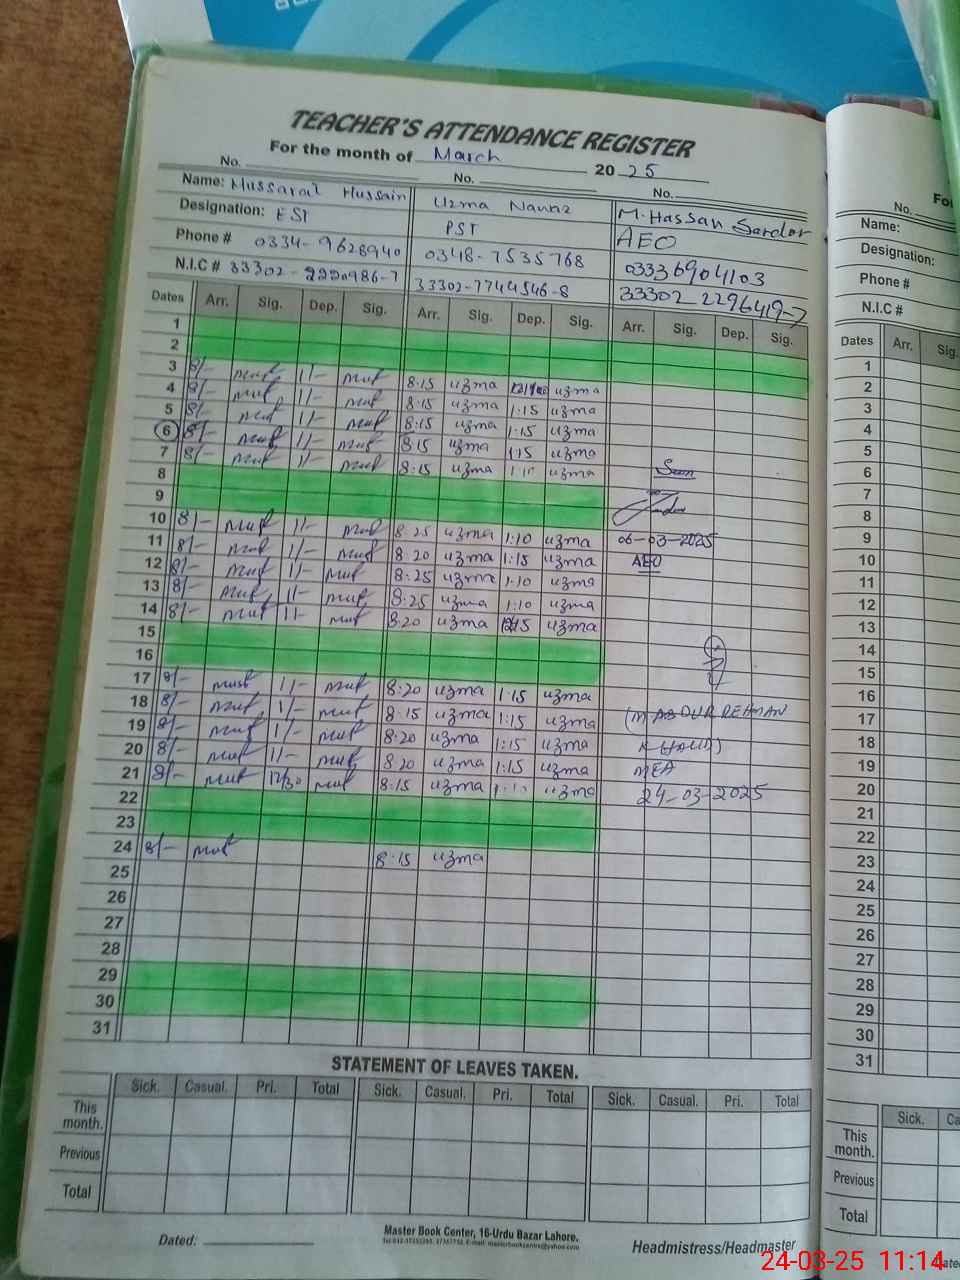 TEACHER'S ATTENDANCE REGISTER
For the month of March 2025
No. No. No.
Name: Mussarat Hussain Uzma Nawaz M. Hassan Sardar
Designation: EST PST AEO
Phone # 0334-9628940 0348-7535768 03336904103
N.I.C # 33302-2220986-7 33302-7744546-8 33302 2296419-7
Dates Arr. Sig. Dep. Sig. Arr. Sig. Dep. Sig. Arr. Sig. Dep. Sig.
1
2
3 8/- mus 1/- mus 8:15 uzma uzma
4 8/- mus 1/- mus 8:15 uzma 1:15 uzma
5 8/- mus 1/- mus 8:15 uzma 1:15 uzma
6 8/- mus 1/- mus 8:15 uzma 1:15 uzma
7 8/- mus 1/- mus 8:15 uzma 1:10 uzma
8
9
10 8/- mus 1/- mus 8:25 uzma 1:10 uzma 06-03-2025
11 8/- mus 1/- mus 8:20 uzma 1:15 uzma AEO
12 8/- mus 1/- mus 8:25 uzma 1:10 uzma
13 8/- mus 1/- mus 8:25 uzma 1:10 uzma
14 8/- mus 1/- mus 8:20 uzma uzma
15
16
17 8/- mus 1/- mus 8:20 uzma 1:15 uzma
18 8/- mus 1/- mus 8:15 uzma 1:15 uzma (M ABDUR REHMAN
19 8/- mus 1/- mus 8:20 uzma 1:15 uzma
20 8/- mus 1/- mus 8:20 uzma 1:15 uzma MEA
21 8/- mus 12/30 mus 8:15 uzma uzma 24-03-2025
22
23
24 8/- mus 8:15 uzma
25
26
27
28
29
30
31
STATEMENT OF LEAVES TAKEN.
Sick. Casual. Pri. Total Sick. Casual. Pri. Total Sick. Casual. Pri. Total
This month.
Previous
Total
Dated:
Master Book Center, 16-Urdu Bazar Lahore.
Headmistress/Headmaster
No.
Name:
Designation:
Phone #
N.I.C #
Dates Arr. Sig.
1
2
3
4
5
6
7
8
9
10
11
12
13
14
15
16
17
18
19
20
21
22
23
24
25
26
27
28
29
30
31
Sick.
This month.
Previous
Total
24-03-25 11:14